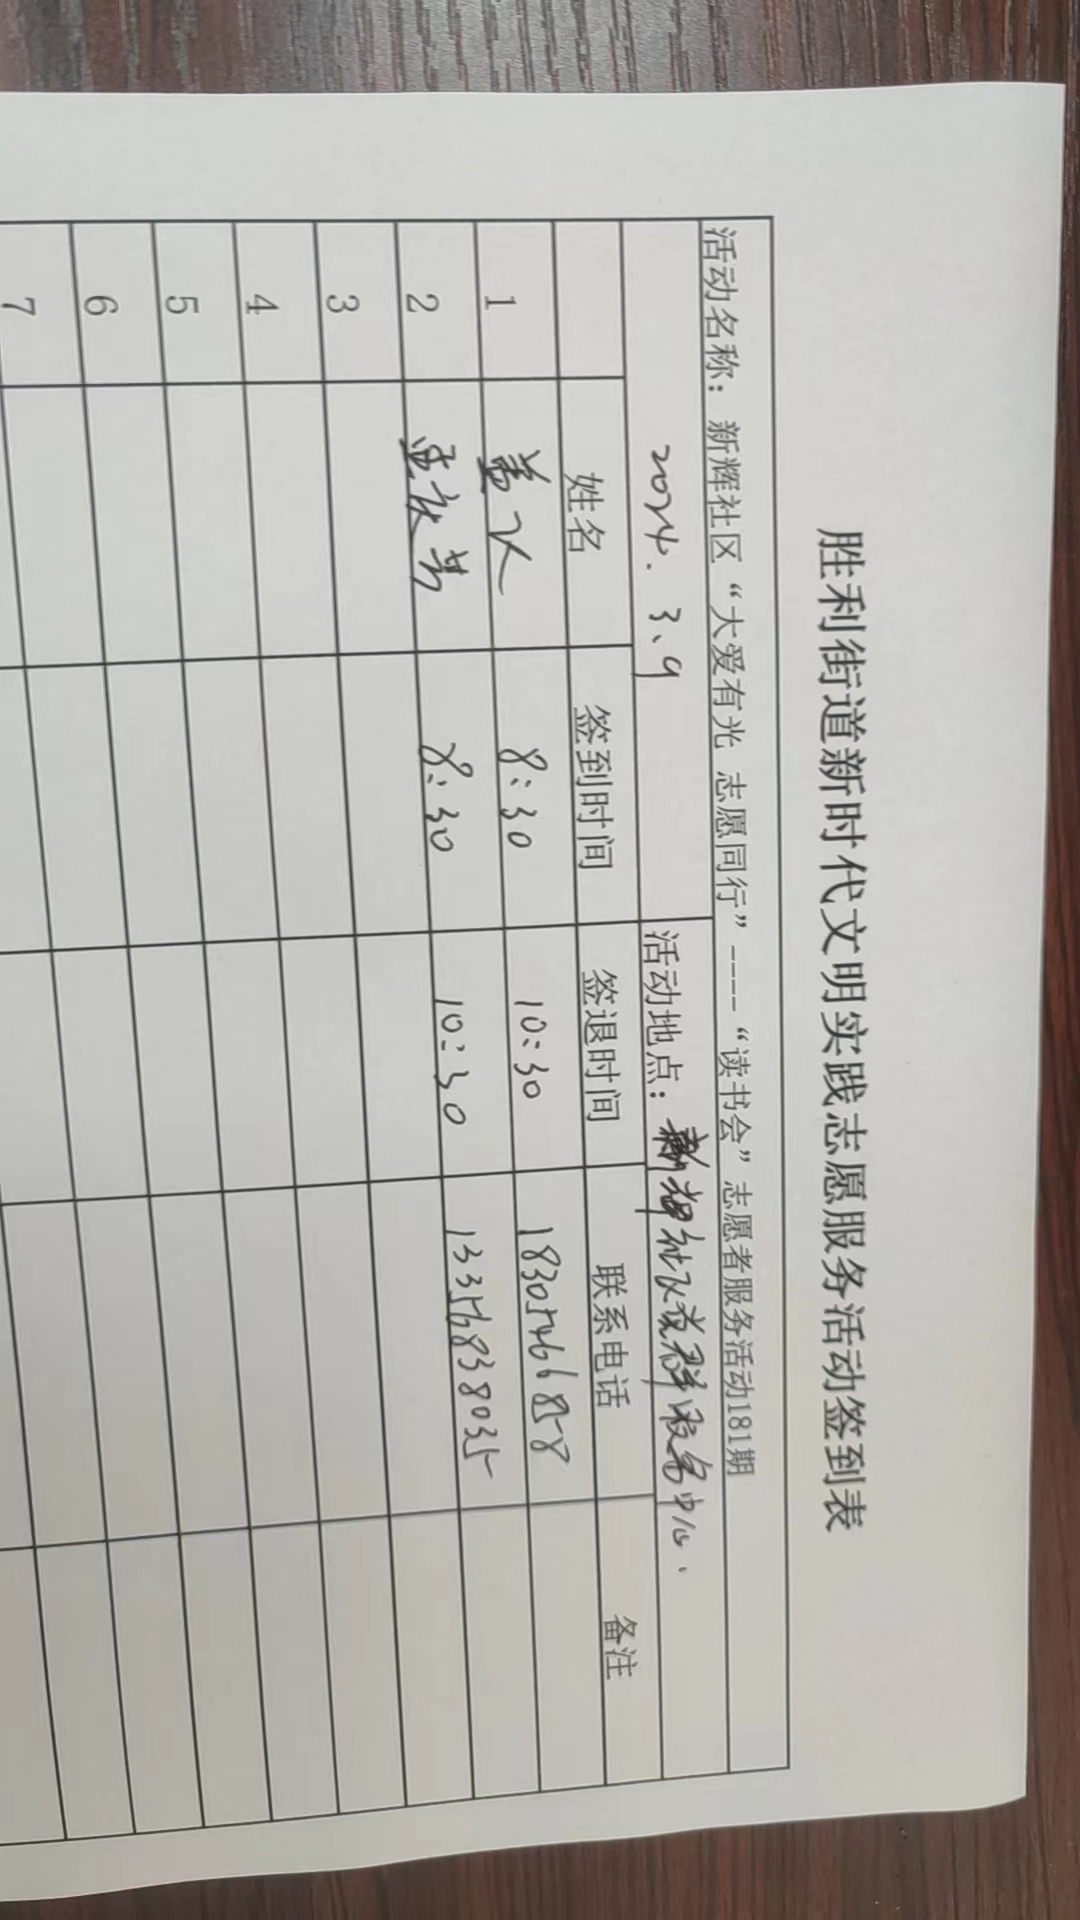 胜利街道新时代文明实践志愿服务活动签到表
活动名称：新辉社区“大爱有光 志愿同行”----“读书会”志愿者服务活动181期
2024.3、9 活动地点：新辉社区党群服务中心.
姓名 签到时间 签退时间 联系电话 备注
1 8:30 10:30 18305466858
2 8:30 10:30 13356838035
3
4
5
6
7